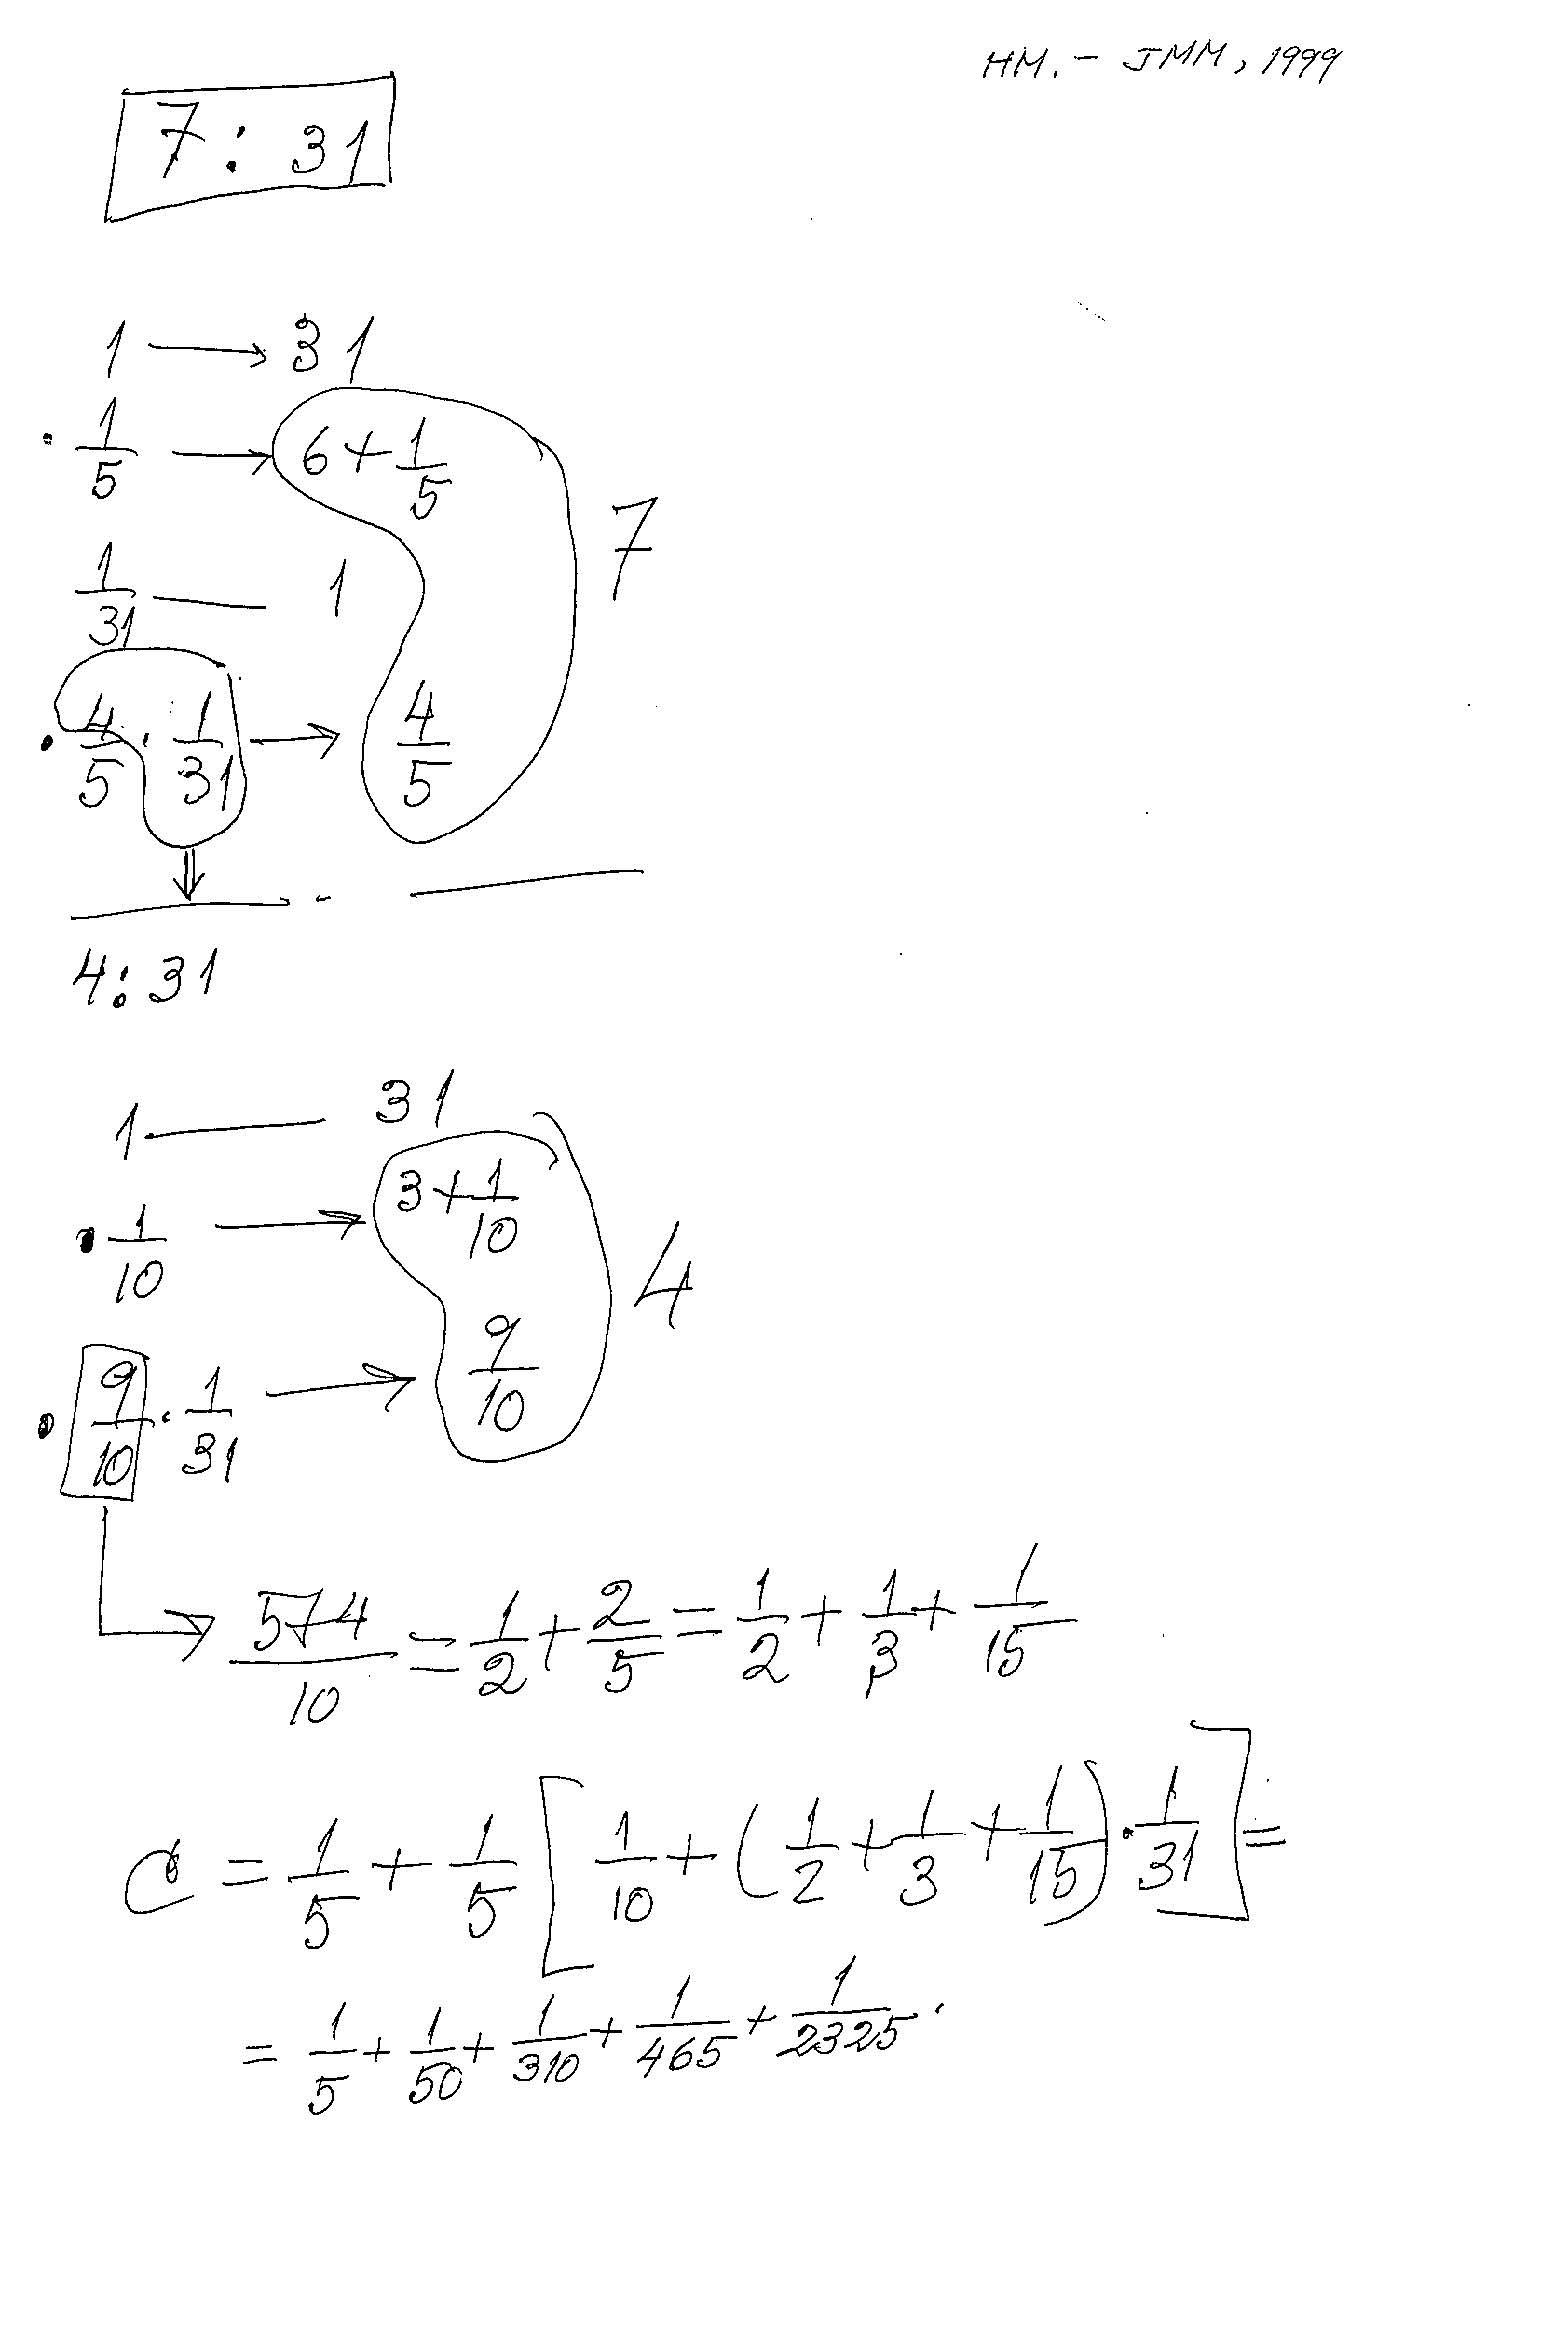 HM. - JMM, 1999
7 : 31
1 → 31
· 1/5 → 6 + 1/5
7
1/31 — 1
· 4/5 · 1/31 → 4/5
⇓
4 : 31
1 — 31
· 1/10 → 3 + 1/10
4
· 9/10 · 1/31 → 9/10
→ 5+4/10 = 1/2 + 2/5 = 1/2 + 1/3 + 1/15
C = 1/5 + 1/5 [ 1/10 + ( 1/2 + 1/3 + 1/15 ) · 1/31 ] =
= 1/5 + 1/50 + 1/310 + 1/465 + 1/2325 .